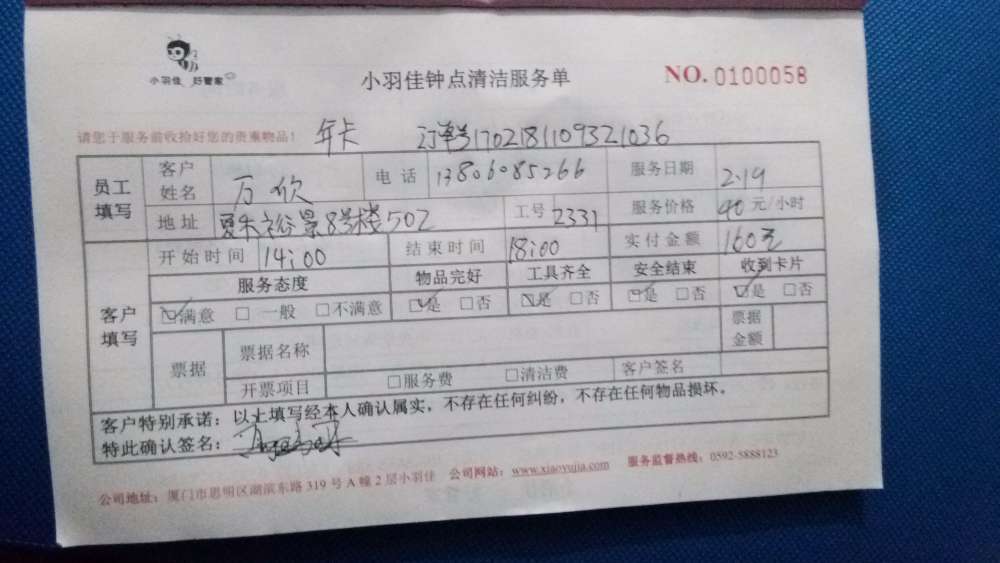 小羽佳 好管家
小羽佳钟点清洁服务单
NO. 0100058
请您于服务前收拾好您的贵重物品！ 年卡 订单号1702181109321036
员工填写 客户姓名 万欣 电话 13806085266 服务日期 2.19
地址 夏禾裕景8号楼502 工号 2331 服务价格 40元/小时
客户填写 开始时间 14:00 结束时间 18:00 实付金额 160元
服务态度 物品完好 工具齐全 安全结束 收到卡片
☑满意 □一般 □不满意 ☑是 □否 ☑是 □否 ☑是 □否 ☑是 □否
票据 票据名称 票据金额
开票项目 □服务费 □清洁费 客户签名
客户特别承诺：以上填写经本人确认属实，不存在任何纠纷，不存在任何物品损坏。
特此确认签名：
公司地址：厦门市思明区湖滨东路319号A幢2层小羽佳 公司网站：www.xiaoyujia.com 服务监督热线：0592-5888123